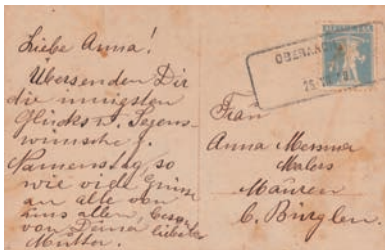 Liebe Anna!
Übersenden Dir
die innigsten
Glücks u. Segens-
wünsche z.
Namenstag, so
wie viele Grüsse
an alle von
uns allen, beson
von Deiner liebsten
Mutter.
Frau
Anna Messma
Malers
Mauren
b. Bürglen.